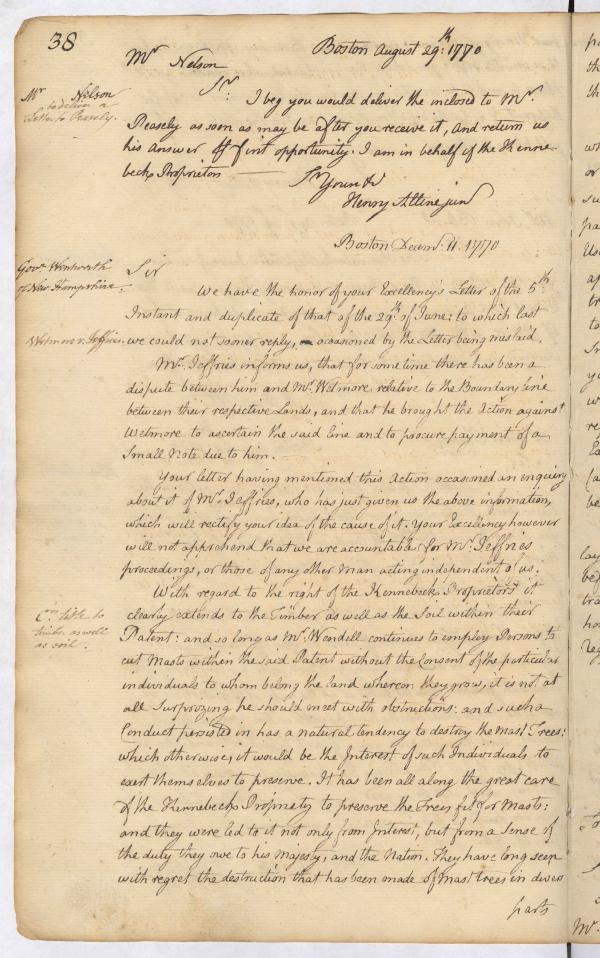 38
Boston August 29:th 1770
Mr Nelson
Mr Nelson
to deliver a
Letter to Peasely.
Sr.
I beg you would deliver the inclosed to Mr.
Peasely as soon as may be after you receive it, and return us
his answer first opportunity. I am in behalf of the Kenne-
beck Proprietors
Sr Yours &c
Henry Alline junr
Boston Decemr. 11. 1770
Govr. Wentworth
of New Hampshire.
Sir
We have the honor of your Excellency's Letter of the 5th.
Instant and duplicate of that of the 29th. of June: to which last
Wetmore v. Jeffries.
we could not sooner reply, occasioned by the Letter being mislaid.
Mr. Jeffries informs us, that for some time there has been a
dispute between him and Mr. Wetmore relative to the Boundary line
between their respective Lands, and that he brought the Action against
Wetmore to ascertain the said line and to procure payment of a
Small Note due to him.
Your letter having mentioned this Action occasioned an enquiry
about it of Mr. Jeffries, who has just given us the above information,
which will rectify your idea of the cause of it. Your Excellency however
will not apprehend that we are accountable for Mr. Jeffries
proceedings, or those of any other man acting independent of us.
With regard to the right of the Kennebeck Proprietors it
Title to
timber as well
as soil.
clearly extends to the Timber as well as the Soil within their
Patent: and so long as Mr. Wendell continues to employ Persons to
cut Masts within the said Patent without the Consent of the particular
individuals to whom belong the land whereon they grow, it is not at
all Surprizing he should meet with obstructions: and such a
Conduct persisted in has a natural tendency to destroy the Mast Trees:
which otherwise, it would be the Interest of such Individuals to
exert themselves to preserve. It has been all along the great care
of the Kennebeck Propriety to preserve the Trees fit for Masts:
and they were led to it not only from Interest, but from a Sense of
the duty they owe to his Majesty, and the Nation. They have long seen
with regret the destruction that has been made of Mast trees in divers
parts